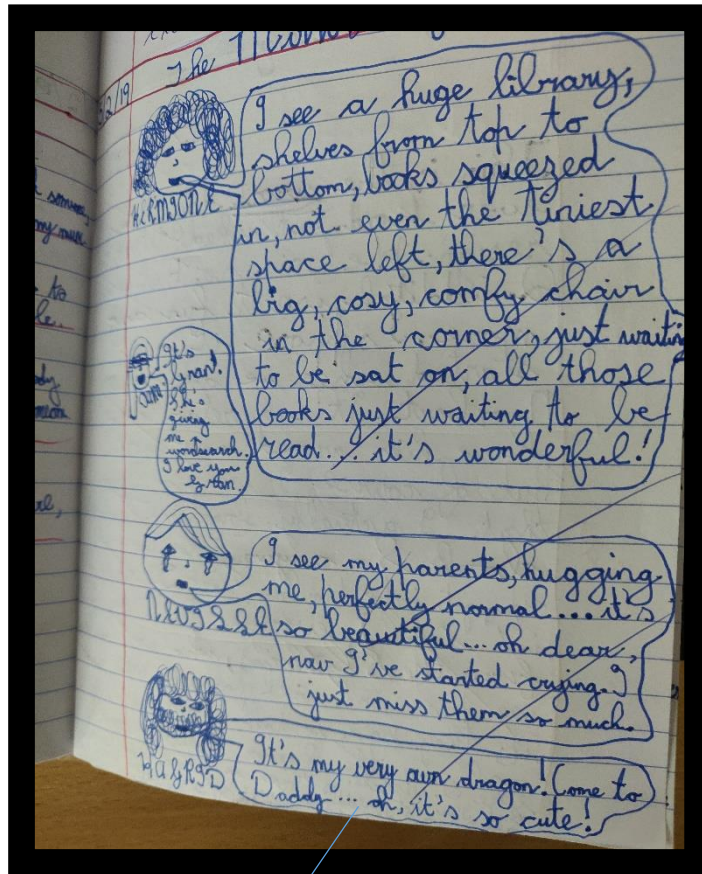 The
3/2/19
I see a huge library,
shelves from top to
bottom, books squeezed
in, not even the tiniest
space left, there's a
big, cosy, comfy chair
in the corner, just waiting
to be sat on, all those
books just waiting to be
read... it's wonderful!
HERMIONE
It's
Gran!
She's
giving
me a
wordsearch.
I love you
Gran
I see my parents, hugging
me, perfectly normal... it's
so beautiful... oh dear,
now I've started crying. I
just miss them so much.
NEVILLE
It's my very own dragon! Come to
Daddy... oh, it's so cute!
HAGRID